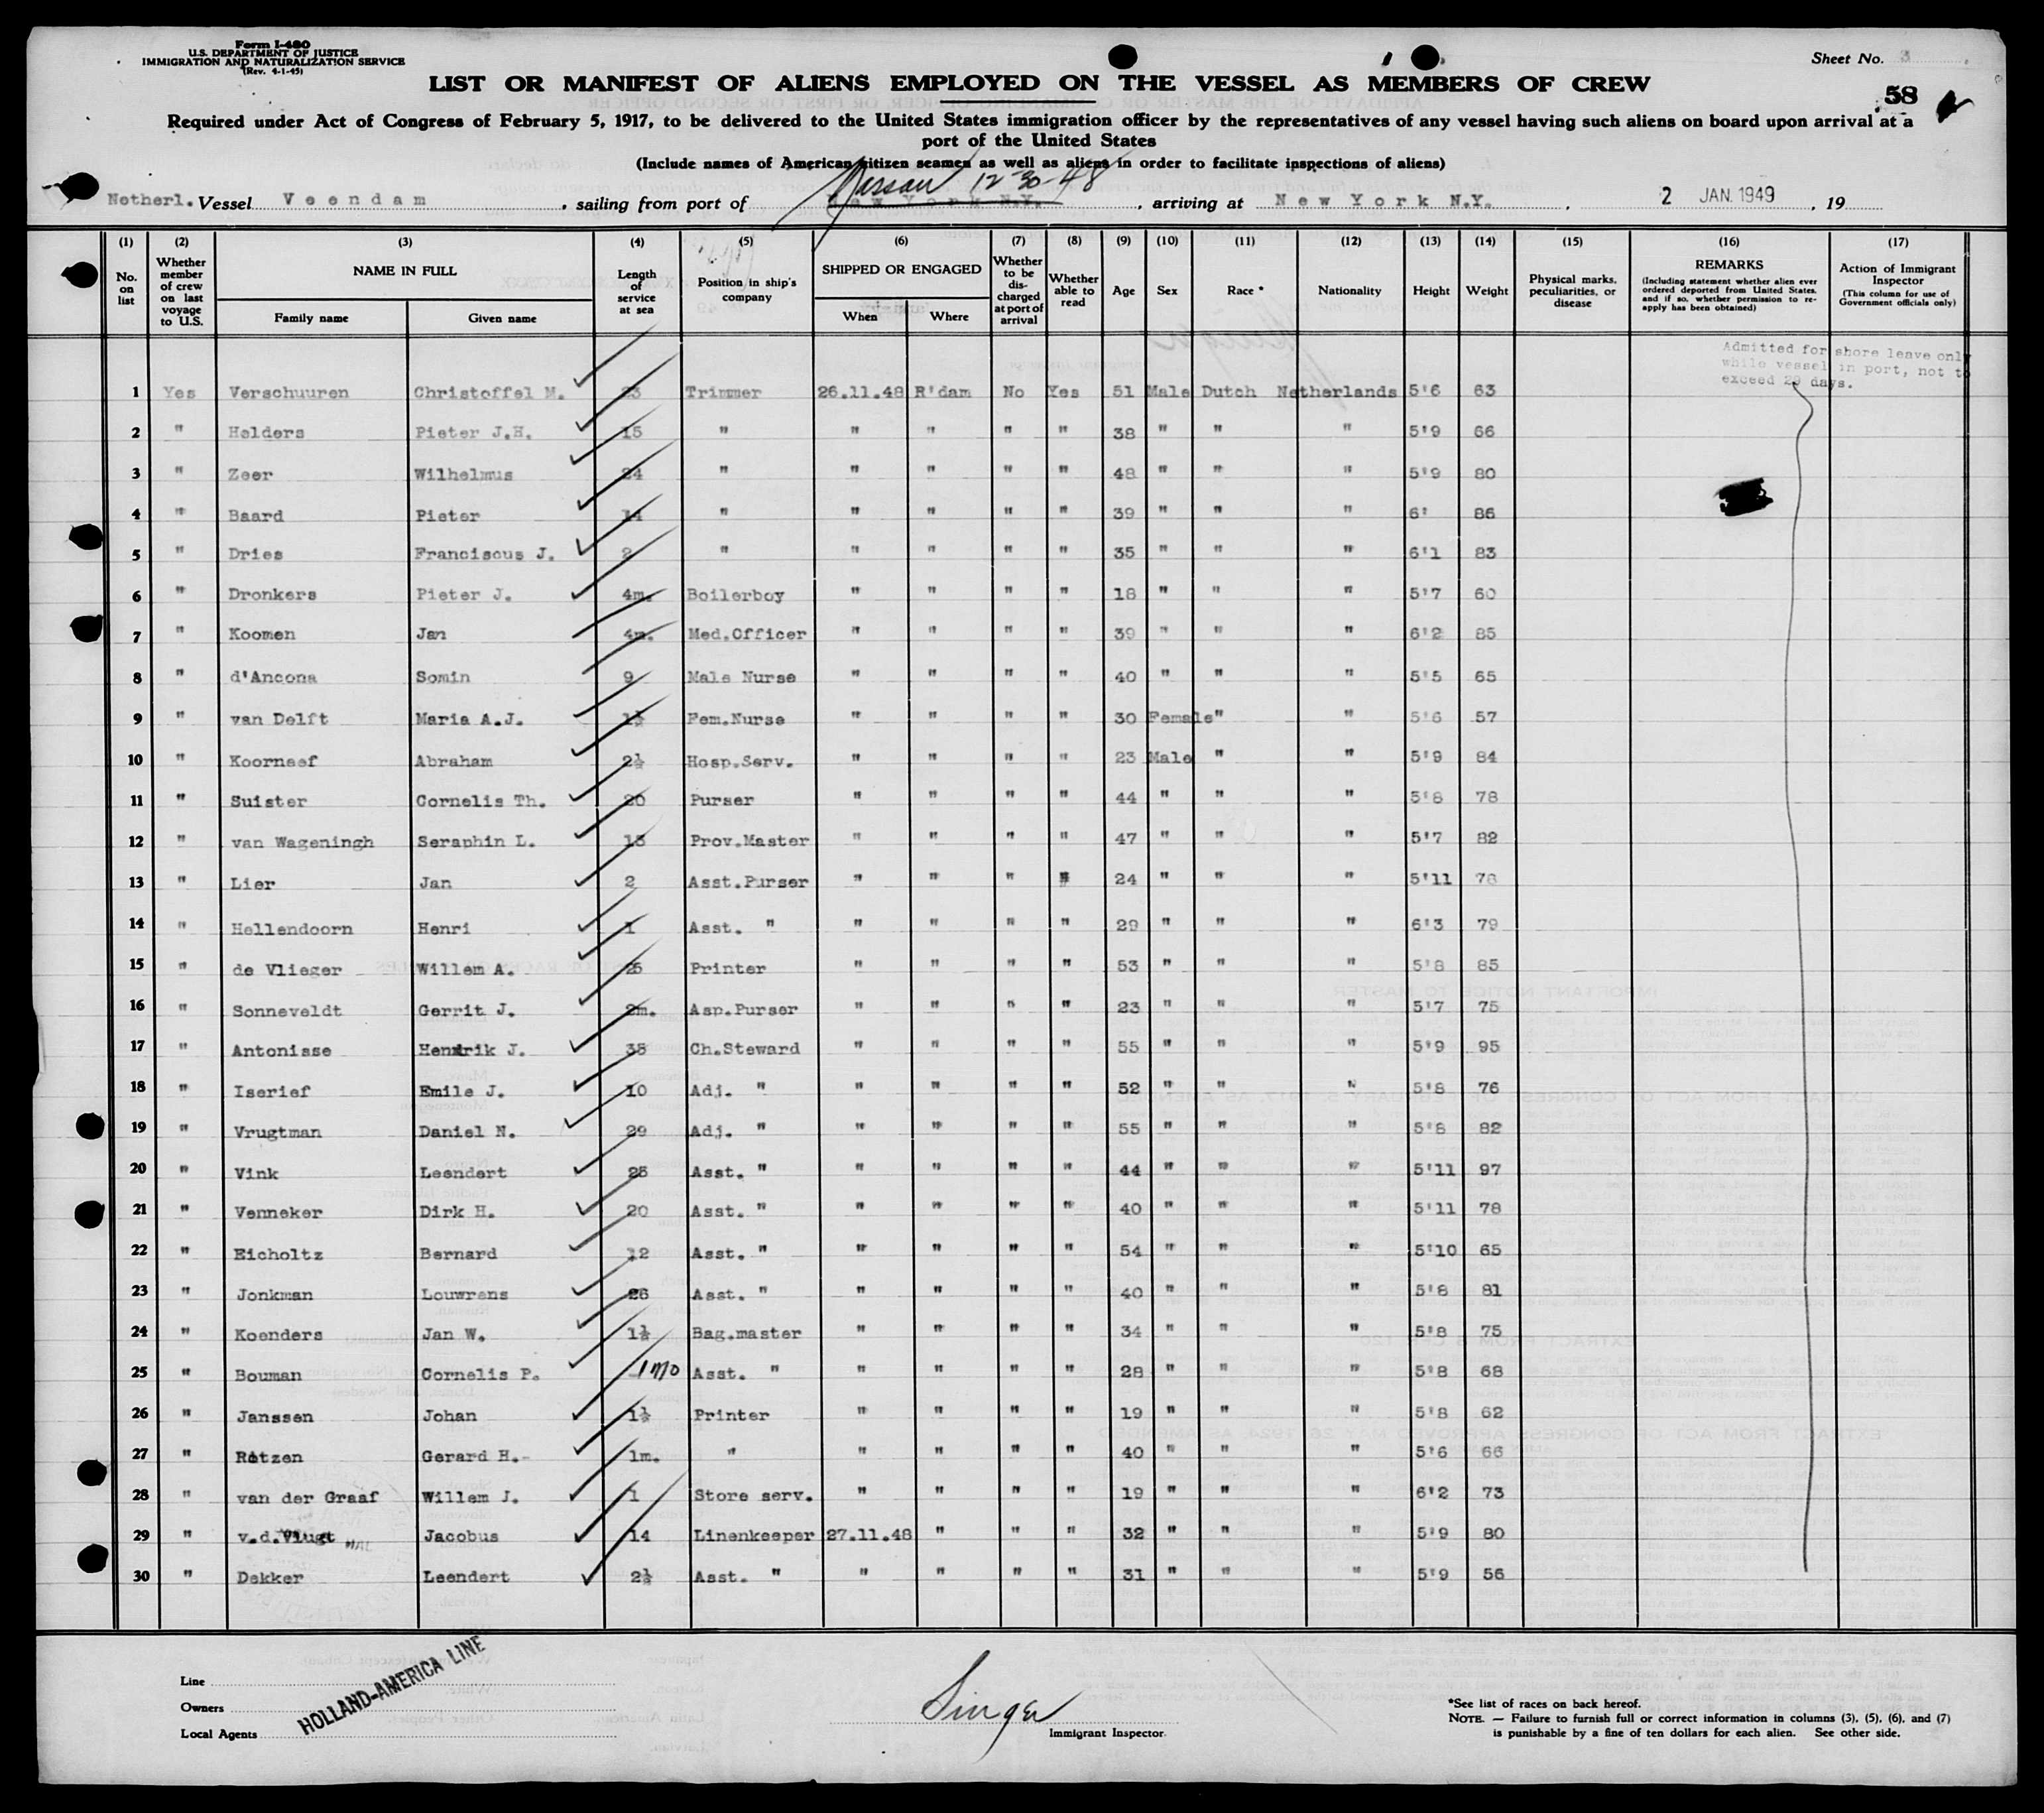 Form I-480
U.S. DEPARTMENT OF JUSTICE
IMMIGRATION AND NATURALIZATION SERVICE
(Rev. 4-1-45)
Sheet No. 3
LIST OR MANIFEST OF ALIENS EMPLOYED ON THE VESSEL AS MEMBERS OF CREW
58
Required under Act of Congress of February 5, 1917, to be delivered to the United States immigration officer by the representatives of any vessel having such aliens on board upon arrival at a
port of the United States
(Include names of American citizen seamen as well as aliens in order to facilitate inspections of aliens)
Nassau 12-30-48
Netherl. Vessel Veendam, sailing from port of New York N.Y., arriving at New York N.Y., 2 JAN. 1949, 19
(1) (2) (3) (4) (5) (6) (7) (8) (9) (10) (11) (12) (13) (14) (15) (16) (17)
No. on list
Whether member of crew on last voyage to U.S.
NAME IN FULL
Family name
Given name
Length of service at sea
Position in ship's company
SHIPPED OR ENGAGED
When
Where
Whether to be discharged at port of arrival
Whether able to read
Age
Sex
Race *
Nationality
Height
Weight
Physical marks, peculiarities, or disease
REMARKS
(Including statement whether alien ever ordered deported from United States, and if so, whether permission to reapply has been obtained)
Action of Immigrant Inspector
(This column for use of Government officials only)
Admitted for shore leave only
while vessel in port, not to
exceed 29 days.
1 Yes Verschuuren Christoffel M. 23 Trimmer 26.11.48 R'dam No Yes 51 Male Dutch Netherlands 5'6 63
2 " Helders Pieter J.H. 15 " " " " " 38 " " " 5'9 66
3 " Zeer Wilhelmus 24 " " " " " 48 " " " 5'9 80
4 " Baard Pieter 14 " " " " " 39 " " " 6' 86
5 " Dries Franciscus J. 2 " " " " " 35 " " " 6'1 83
6 " Dronkers Pieter J. 4m. Boilerboy " " " " 18 " " " 5'7 60
7 " Koomen Jan 4m. Med.Officer " " " " 39 " " " 6'2 85
8 " d'Ancona Somin 9 Male Nurse " " " " 40 " " " 5'5 65
9 " van Delft Maria A.J. 1½ Fem.Nurse " " " " 30 Female " " 5'6 57
10 " Koorneef Abraham 2½ Hosp.Serv. " " " " 23 Male " " 5'9 84
11 " Suister Cornelis Th. 20 Purser " " " " 44 " " " 5'8 78
12 " van Wageningh Seraphin L. 13 Prov.Master " " " " 47 " " " 5'7 82
13 " Lier Jan 2 Asst.Purser " " " " 24 " " " 5'11 78
14 " Hellendoorn Henri 1 Asst. " " " " " 29 " " " 6'3 79
15 " de Vlieger Willem A. 25 Printer " " " " 53 " " " 5'8 85
16 " Sonneveldt Gerrit J. 2m. Asp.Purser " " " " 23 " " " 5'7 75
17 " Antonisse Hendrik J. 35 Ch.Steward " " " " 55 " " " 5'9 95
18 " Iserief Emile J. 10 Adj. " " " " " 52 " " " 5'8 76
19 " Vrugtman Daniel N. 29 Adj. " " " " " 55 " " " 5'8 82
20 " Vink Leendert 25 Asst. " " " " " 44 " " " 5'11 97
21 " Venneker Dirk H. 20 Asst. " " " " " 40 " " " 5'11 78
22 " Eicholtz Bernard 12 Asst. " " " " " 54 " " " 5'10 65
23 " Jonkman Louwrens 26 Asst. " " " " " 40 " " " 5'8 81
24 " Koenders Jan W. 1½ Bag.master " " " " 34 " " " 5'8 75
25 " Bouman Cornelis P. 1 mo Asst. " " " " " 28 " " " 5'8 68
26 " Janssen Johan 1½ Printer " " " " 19 " " " 5'8 62
27 " Ritzen Gerard H. 1m. " " " " " 40 " " " 5'6 66
28 " van der Graaf Willem J. 1 Store serv. " " " " 19 " " " 6'2 73
29 " v.d.Vlugt Jacobus 14 Linenkeeper 27.11.48 " " " 32 " " " 5'9 80
30 " Dekker Leendert 2½ Asst. " " " " " 31 " " " 5'9 56
Line
Owners
Local Agents
HOLLAND-AMERICA LINE
Singer
Immigrant Inspector.
*See list of races on back hereof.
NOTE. — Failure to furnish full or correct information in columns (3), (5), (6), and (7)
is punishable by a fine of ten dollars for each alien. See other side.